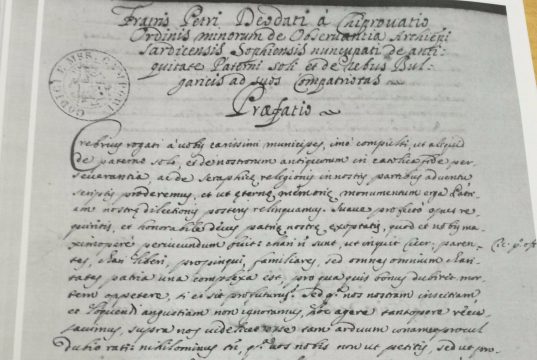 Fratris Petri Deodati à Chiprovatio
Ordinis minorum de Observantia Archiepi
Sardicensis Sophiensis nuncupati de anti-
quitate Paterni soli et de rebus Bul-
garicis ad suos Compatriotas
Præfatio
Crebrius rogati à vobis carissimi municipes, imò compulsi, ut aliquid
de paterno solo, et de nostrorum antiquorum in catholica fide per
severantia, ac de Seraphicæ religionis in nostris partibus adventu
scriptis proderemus, et ut æternæ memoriæ monumentum erga Patri-
am nostræ dilectionis posteris relinquamus. Suave profectò opus re-
quiritis, et honorabile decus patriæ nostræ exoptatis, quod et nobis ma-
ximoperè periucundum fuit: chari sunt, ut inquit Cicer, paren-
tes, chari liberi, propinqui, familiares, sed omnes omnium chari-
tates patria una complexa est, pro qua quis bonus dubitet mor-
tem oppetere, si ei sit profuturus? Sed nos nostram inscitiam
et loquendi angustiam non ignoramus, hoc agere tantopere recu-
savimus, supra nos videlicet esse tam arduum conamen procul
dubio rati: nihilominus vos nobis non ut petitis, sed ut pro-
Cic. p° off